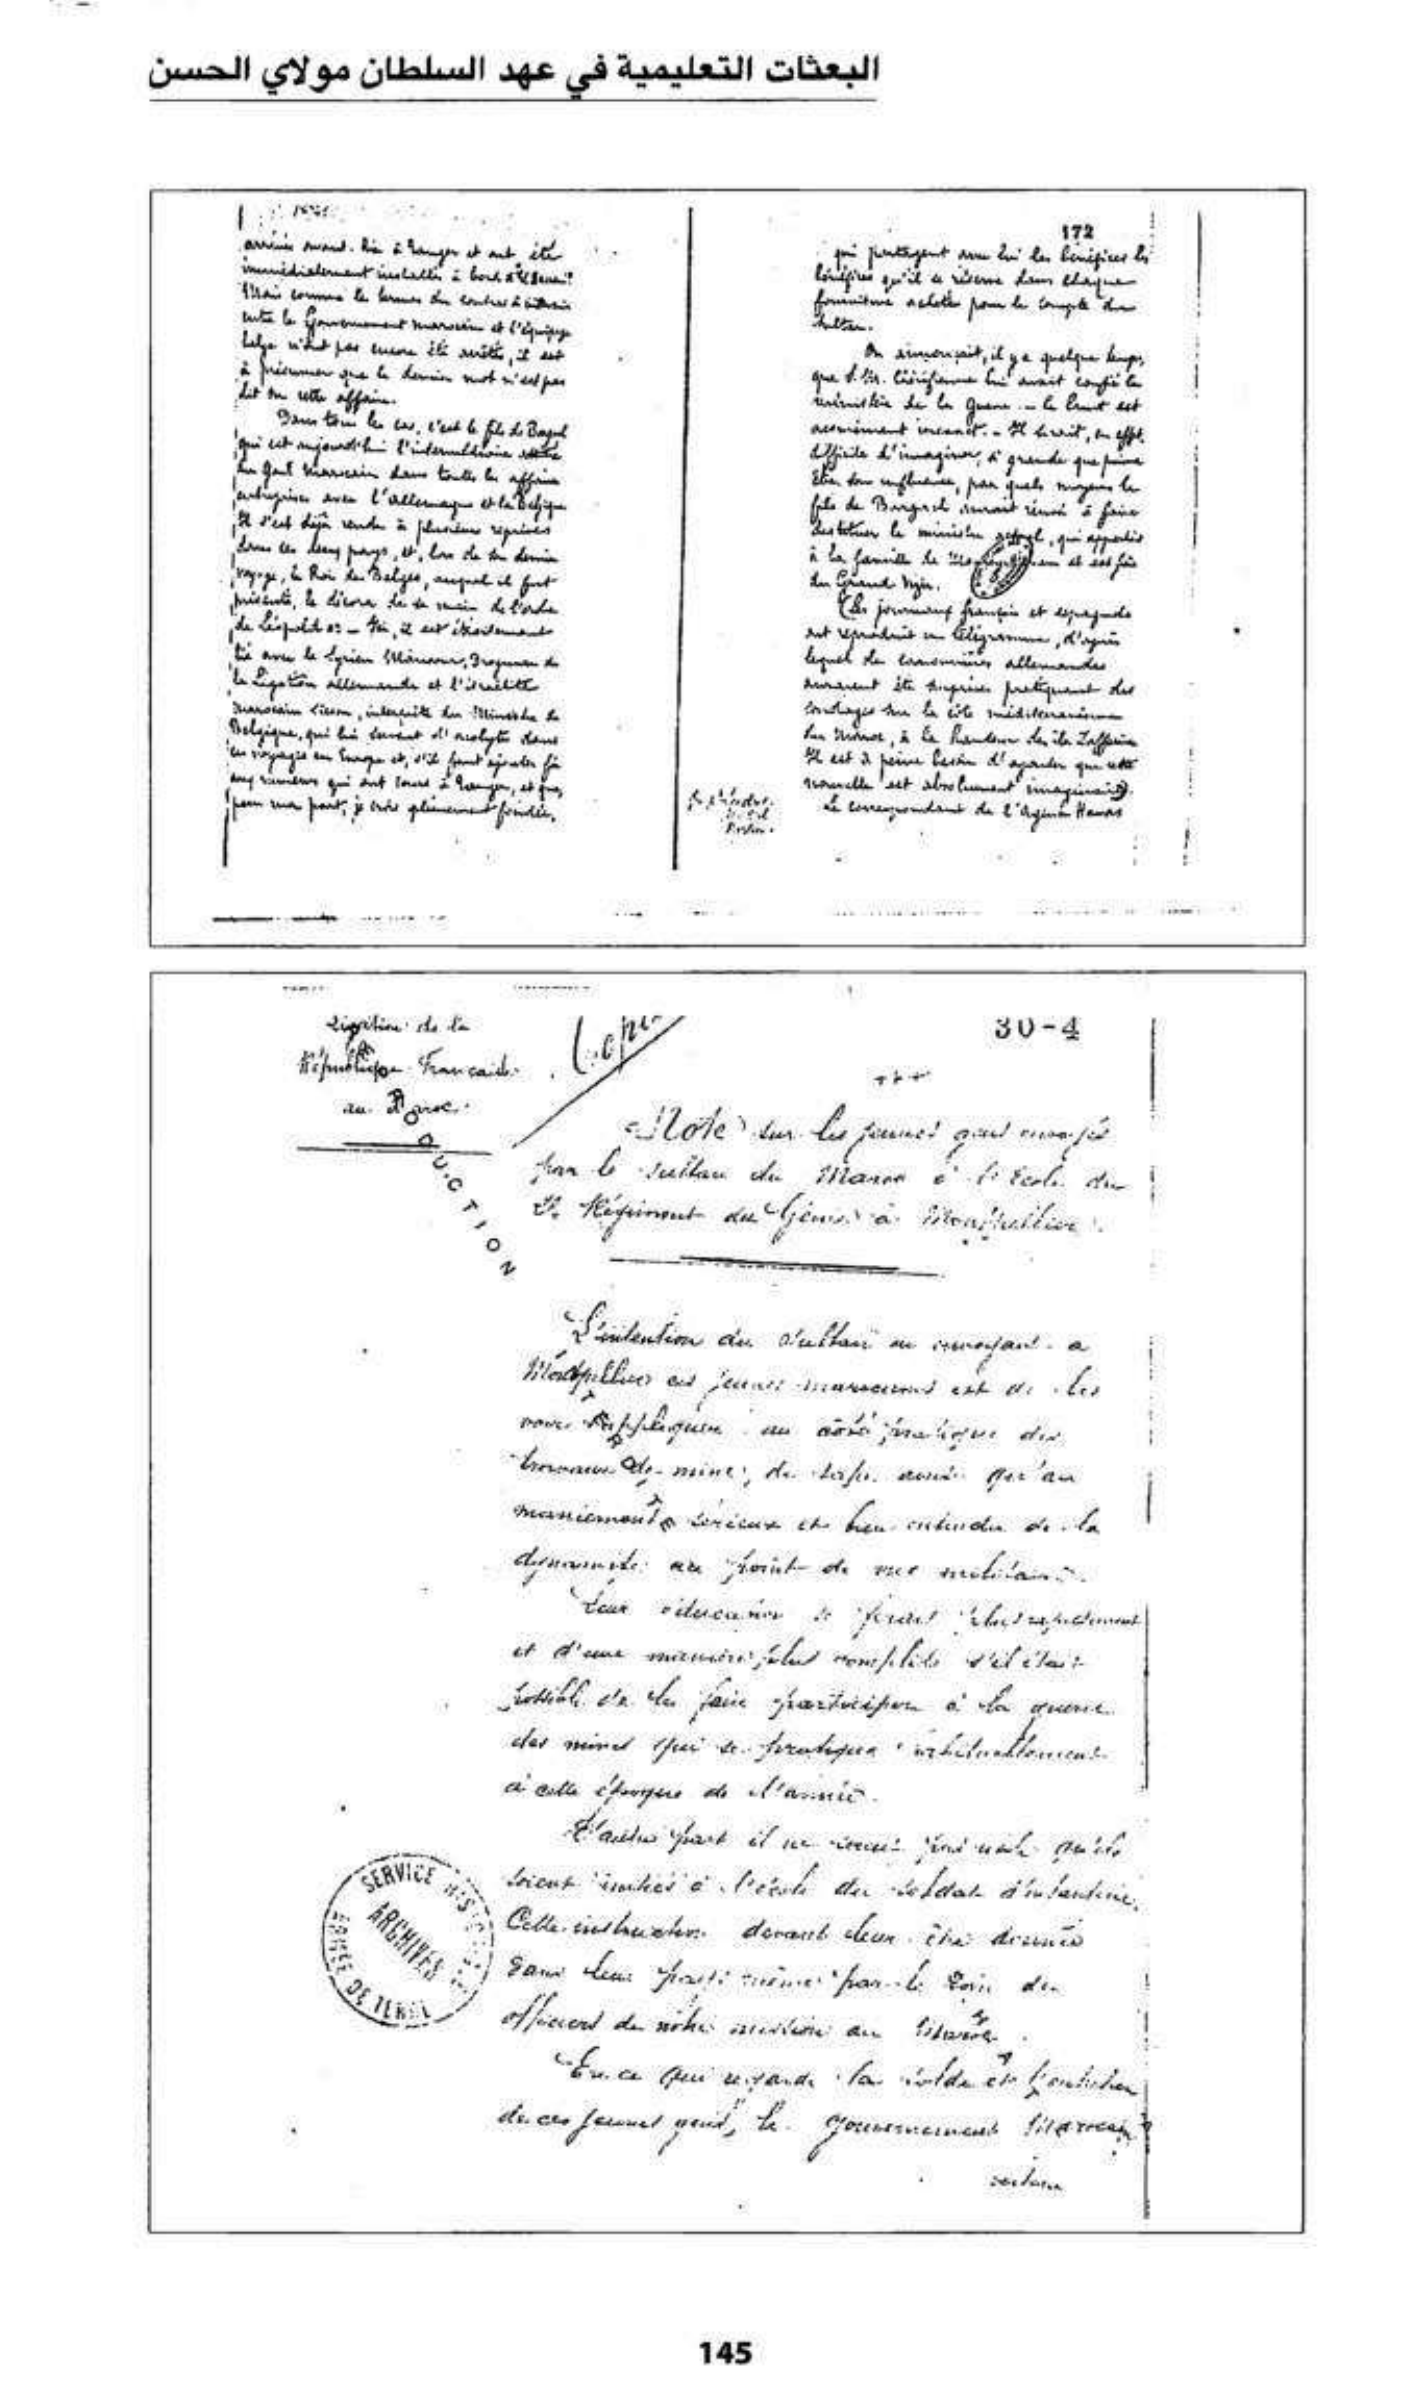 البعثات التعليمية في عهد السلطان مولاي الحسن
arrivés à Tanger et ont été
immédiatement installés à bord
Mais comme les termes du contrat à
entre le Gouvernement marocain et l'équipage
belge n'ont pas encore été arrêtés, il est
à présumer que le dernier mot n'est pas
dit sur cette affaire.
Dans tous les cas, c'est le fils de
qui est aujourd'hui l'intermédiaire
du Gvt marocain dans toutes les affaires
entreprises avec l'Allemagne et la Belgique
Il s'est déjà rendu à plusieurs reprises
dans ces deux pays, et, lors de son dernier
voyage, le Roi des Belges, auquel il fut
présenté, le décora de sa main de l'ordre
de Léopold il est étroitement
lié avec le Syrien Mansour, Drogman de
la Légation allemande et l'israélite
marocain interprète du Ministre de
Belgique, qui lui servent d'acolytes dans
ses voyages en Europe et, s'il faut ajouter foi
aux rumeurs qui ont cours à Tanger, et que,
pour ma part, je crois pleinement fondées,
172
qui partagent avec lui les bénéfices les
bénéfices qu'il se réserve dans chaque
fourniture achetée pour le compte du
Sultan.
On annonçait, il y a quelque temps,
que S. M. Chérifienne lui avait confié le
ministère de la Guerre. - le bruit est
inexact. - Il serait, en effet,
difficile d'imaginer, si grande que puisse
être son influence, par quels moyens le
fils de Bargach aurait réussi à faire
destituer le ministre actuel, qui appartient
à la famille de et est frère
du Grand Vizir.
(Les journaux français et espagnols
ont reproduit un télégramme, d'après
lequel des canonnières allemandes
auraient été surprises pratiquant des
sondages sur la côte méditerranéenne
du Maroc, à la hauteur des îles Zaffarines
Il est à peine besoin d'ajouter que cette
nouvelle est absolument imaginaire).
Le correspondant de l'Agence Havas
Légation de la
République Française
au Maroc
REPRODUCTION
Copie
30-4
+++
Note sur les jeunes gens envoyés
par le Sultan du Maroc à l'Ecole du
2e Régiment du Génie à Montpellier.
L'intention du Sultan en envoyant à
Montpellier ces jeunes marocains est de les
voir s'appliquer au côté pratique des
travaux de mine, de sape ainsi qu'au
maniement sérieux et bien entendu de la
dynamite au point de vue militaire.
Leur éducation se ferait plus rapidement
et d'une manière plus complète s'il était
possible de les faire participer à la guerre
des mines qui se pratique habituellement
à cette époque de l'année.
D'autre part il ne pas utile qu'ils
soient initiés à l'école du soldat d'infanterie.
Cette instruction devant leur être donnée
dans leur pays même par le soin des
officiers de notre mission au Maroc.
En ce qui regarde la solde et l'entretien
de ces jeunes gens, le gouvernement Marocain
SERVICE HISTORIQUE
ARCHIVES
ARMÉE DE TERRE
145